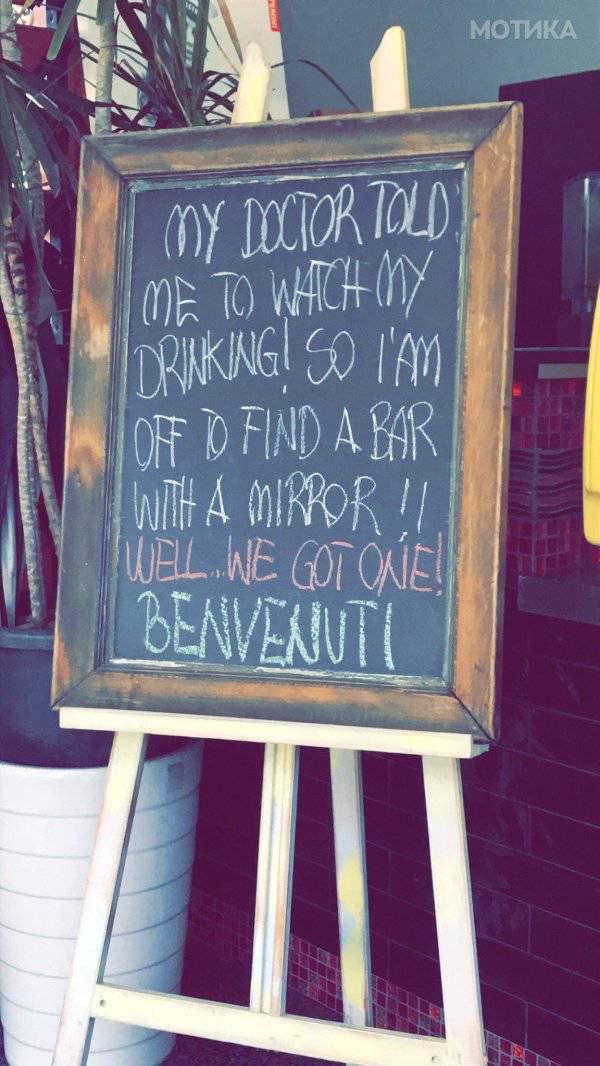 МОТИКА
MY DOCTOR TOLD
ME TO WATCH MY
DRINKING! SO I'AM
OFF TO FIND A BAR
WITH A MIRROR !!
WELL...WE GOT ONE!
BENVENUTI